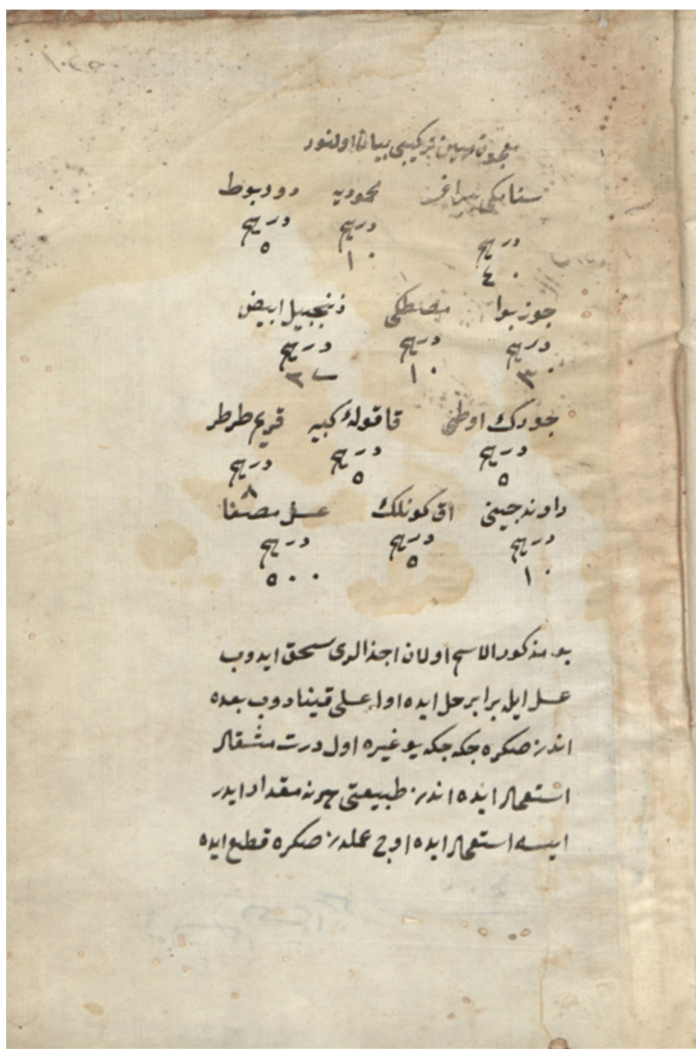 معجون مسهل تركيبى بيان اولنور
سنا مكى محموديه دودبوط
درهم درهم درهم
٤٠ ١٠ ٥
جوز بوا مصطكى زنجبيل ابيض
درهم درهم درهم
٣٠ ١٠
جودك اوطى قاقولۀ كبيه قريم طرطر
درهم درهم درهم
٥ ٥ ٨
راوند چينى اق كونلك عسل مصفا
درهم درهم درهم
١٠ ٥ ٥٠٠
بو مذكور الاسم اولان اجزالرى سحق ايدوب
عسل ايله برابر حل ايده اول عسلى قينادوب بعده
اندن صكره جكه جكه يوغيره اول درت مثقال
استعمال ايده اندن طبيعتى هر نه مقدار ايدر
ايسه استعمال ايده اوچ عملدن صكره قطع ايده